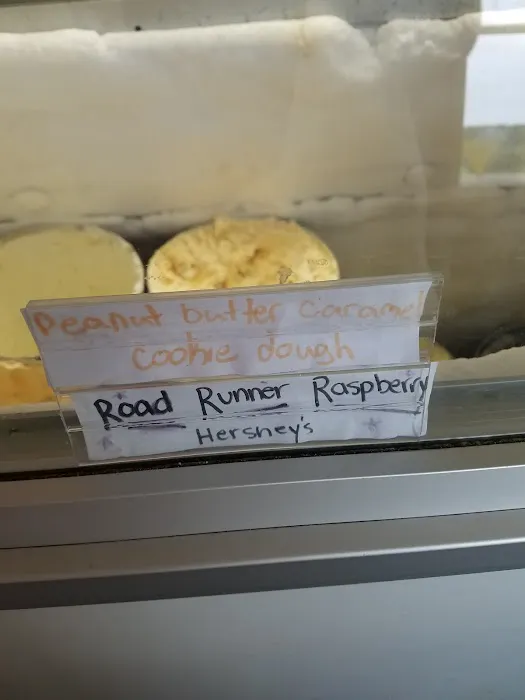 Peanut butter Caramel
cookie dough
Road Runner Raspberry
Hershey's